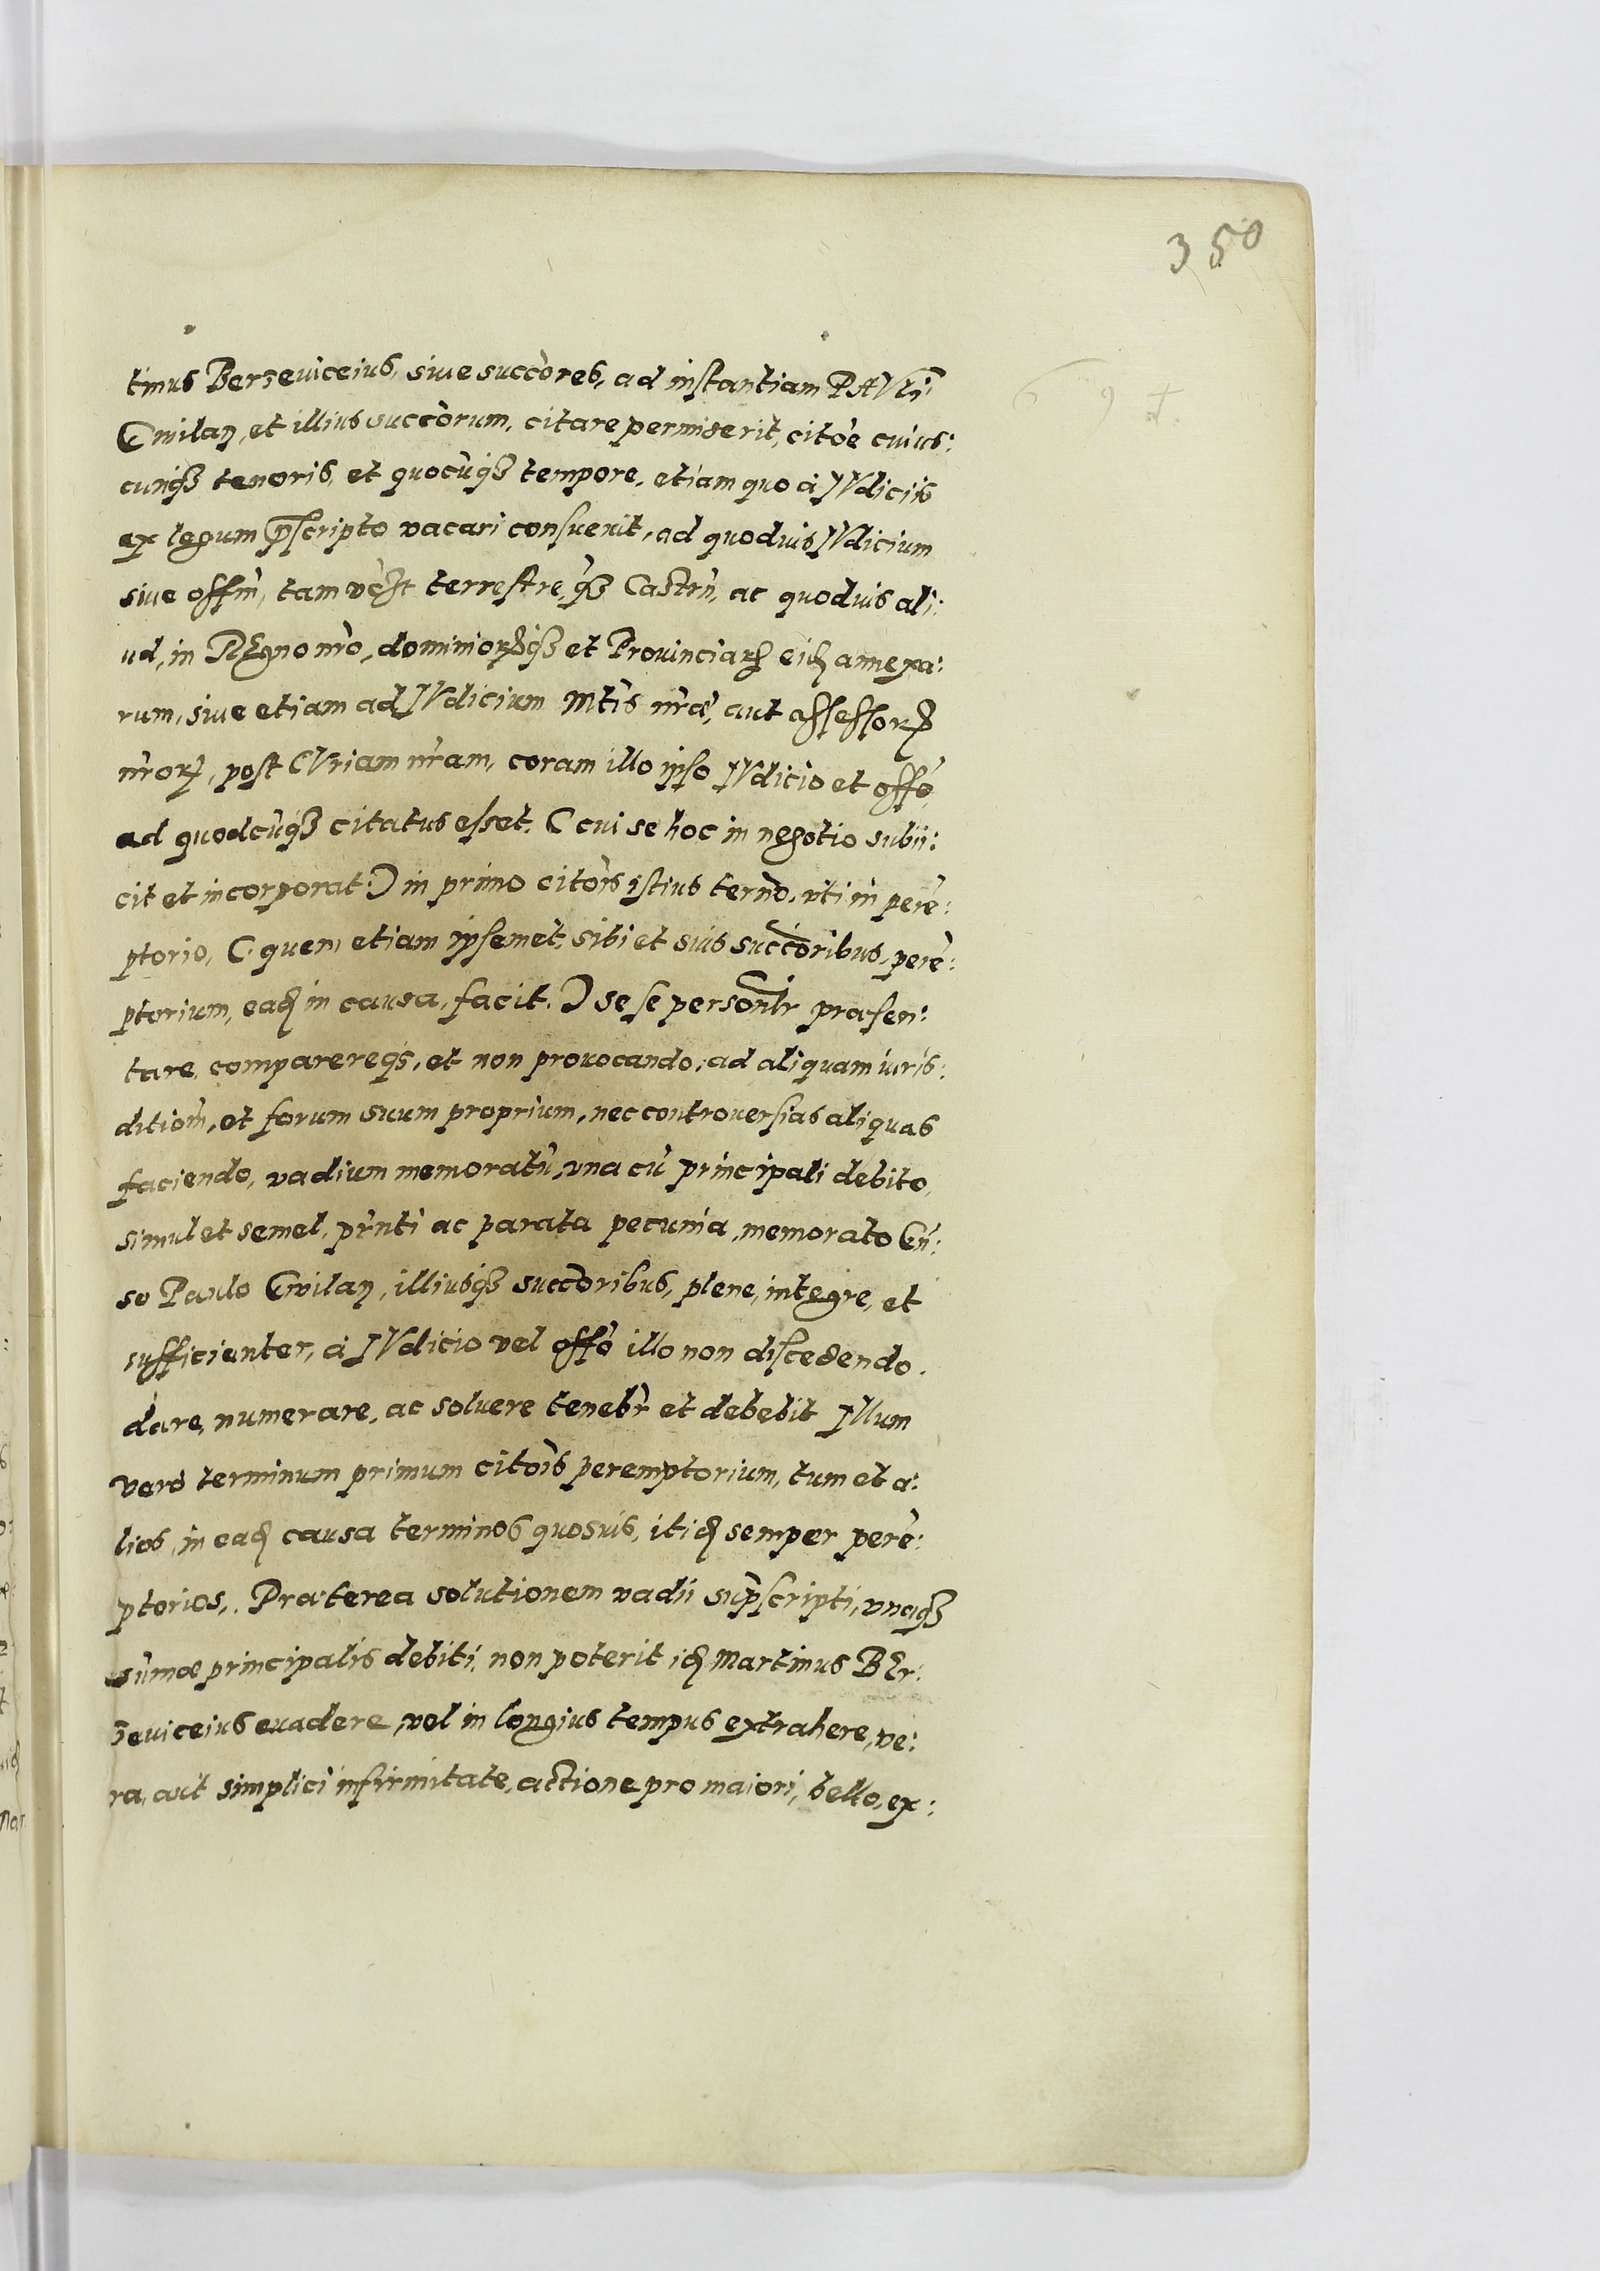 350
tinus Berzeuiceius, siue succ̀ores, ad instantiam PAVli
Cmilan, et illius succ̀orum, citare permiserit, citòe cuius:
cunqȝ tenoris, et quocùqȝ tempore, etiam quo à IVdicijs
ex legum p̄scripto vacari consueuit, ad quoduis IVdicium
siue offm̀, tam terrestre, qȝ Castrn̄, ac quoduis ali:
ud, in REgno nr̀o, dominiorꝝqȝ et Prouinciarꝝ eiꝗ annexa:
rum, siue etiam ad IVdicium Mt̀is nr̀æ, aut assessorꝝ
nr̀orꝝ, post CVriam nr̀am, coram illo ipso IVdicio et offò,
ad quodcùqȝ citatus esset. ( cui se hoc in negotio subii:
cit et incorporat:) in primo citòis istius ternò, vti in perè:
ptorio, ( quem etiam ipsemet, sibi et suis succ̀oribus, perè:
ptorium, eaꝗ in causa, facit.) sese persontr præsen:
tare, comparereqs, et non prouocando, ad aliquam iuris:
ditiom̀, et forum suum proprium, nec controuersias aliquas
faciendo, vadium memoratù, vna cù principali debito,
simul et semel, pr̀nti ac parata pecunia, memorato Gn̄:
so Paulo Cmilan, illiusqȝ succ̀oribus, plene, integre, et
sufficienter, à IVdicio vel offò illo non discedendo.
dare, numerare, ac soluere tenebr̀ et debebit Illum
verò terminum primum citòis peremptorium, tum et a:
lios, in eaꝗ causa terminos quosuis, itiꝗ semper perè:
ptorios,. Præterea solutionem vadii sup̀scripti, vnaqȝ
sùmæ principalis debiti, non poterit iꝗ Martinus BEr:
zeuiceius euadere, vel in longius tempus extrahere, ve:
ra, aut simplici infirmitate, actione pro maiori, bello, ex: